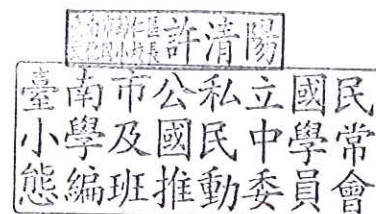 許清陽
臺南市公私立國民
小學及國民中學常
態編班推動委員會